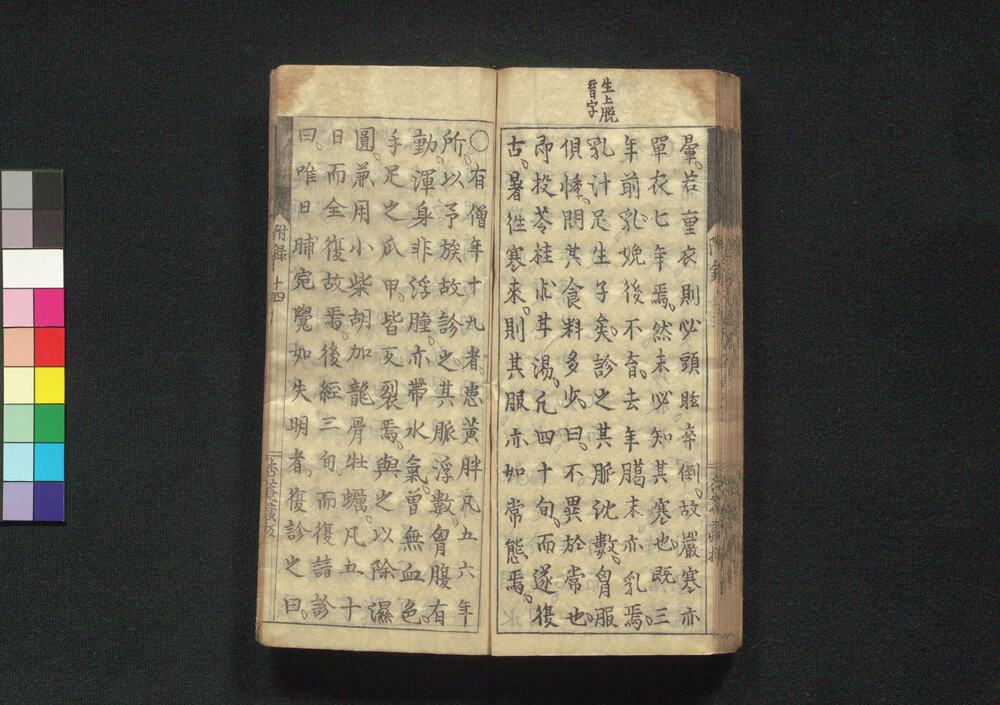 生上脱
晉字
暈。若重衣則必頭眩卒倒。故嚴寒亦
單衣七年焉。然未必知其寒也。既三
年前乳。娩後不育。去年臘末亦乳焉。
乳計足生子矣。診之其脈沈數。胷服
惧悸。問其食料多少。曰。不異於常也。
即投苓桂朮甘湯。凡四十旬。而遂復
古。暑徃寒來。則其服亦如常態焉。
○有僧年十九者。患黃胖凡五六年
所。以予族故診之。其脈浮數。胷腹有
動。渾身非浮腫。亦帶水氣。曾無血色。
手足之爪甲。皆反裂焉。與之以除濕
圓。兼用小柴胡加龍骨牡蠣。凡五十
日而全復故焉。後經三旬。而復請診
曰。唯日晡宛覺如失明者。復診之曰。
附録 十四